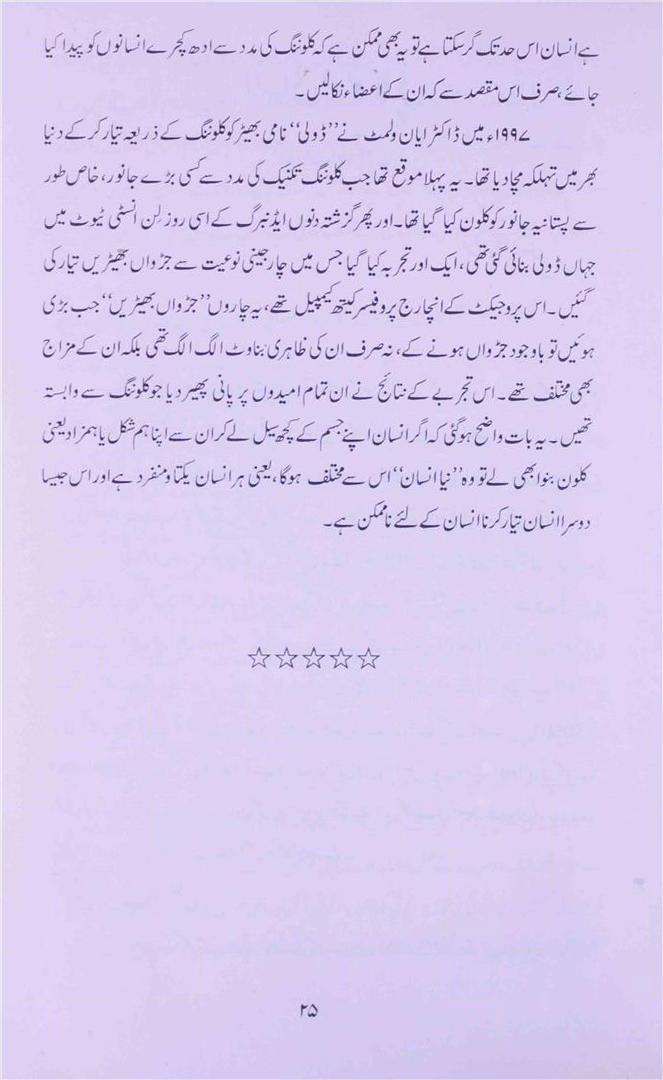 ہے انسان اس حد تک گر سکتا ہے تو یہ بھی ممکن ہے کہ کلوننگ کی مدد سے ادھ کچرے انسانوں کو پیدا کیا
جائے، صرف اس مقصد سے کہ ان کے اعضاء نکالیں۔
۱۹۹۷ء میں ڈاکٹر ایان ولمٹ نے ”ڈولی“ نامی بھیڑ کو کلوننگ کے ذریعہ تیار کر کے دنیا
بھر میں تہلکہ مچا دیا تھا۔ یہ پہلا موقع تھا جب کلوننگ تکنیک کی مدد سے کسی بڑے جانور، خاص طور
سے پستانیہ جانور کو کلون کیا گیا تھا۔ اور پھر گزشتہ دنوں ایڈنبرگ کے اسی روزلن انسٹی ٹیوٹ میں
جہاں ڈولی بنائی گئی تھی، ایک اور تجربہ کیا گیا جس میں چار جینی نوعیت سے جڑواں بھیڑیں تیار کی
گئیں۔ اس پروجیکٹ کے انچارج پروفیسر کیتھ کیمپیل تھے، یہ چاروں ”جڑواں بھیڑیں“ جب بڑی
ہوئیں تو باوجود جڑواں ہونے کے، نہ صرف ان کی ظاہری بناوٹ الگ الگ تھی بلکہ ان کے مزاج
بھی مختلف تھے۔ اس تجربے کے نتائج نے ان تمام امیدوں پر پانی پھیر دیا جو کلوننگ سے وابستہ
تھیں۔ یہ بات واضح ہو گئی کہ اگر انسان اپنے جسم کے کچھ سیل لے کر ان سے اپنا ہم شکل یا ہمزاد یعنی
کلون بنوا بھی لے تو وہ ”نیا انسان“ اس سے مختلف ہوگا، یعنی ہر انسان یکتا و منفرد ہے اور اس جیسا
دوسرا انسان تیار کرنا انسان کے لئے ناممکن ہے۔
☆☆☆☆☆
۲۵